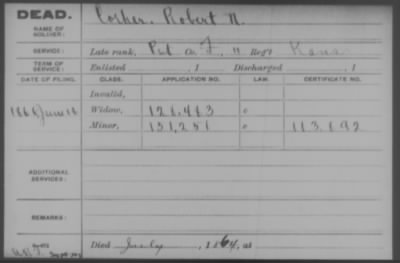 DEAD.
NAME OF SOLDIER:
Cosher, Robert N.
SERVICE:
Late rank, Pvt Co. F, 11 Reg't Kans
TERM OF SERVICE:
Enlisted , 1 Discharged , 1
DATE OF FILING. CLASS. APPLICATION NO. LAW. CERTIFICATE NO.
Invalid,
186 June 16 Widow, 128,483
Minor, 131,251 113,892
ADDITIONAL SERVICES:
REMARKS:
Died July , 1864, at